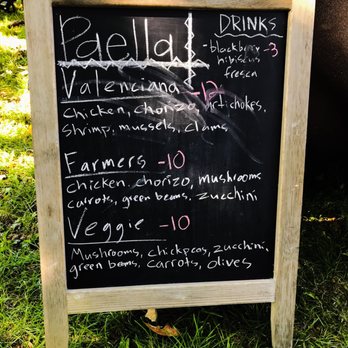 Paella
Valenciana -12
Chicken, chorizo, artichokes,
shrimp, mussels, clams
Farmers -10
chicken, chorizo, mushrooms
carrots, green beans, zucchini
Veggie -10
Mushrooms, chickpeas, zucchini,
green beans, carrots, olives
DRINKS
- blackberry -3
hibiscus
fresca